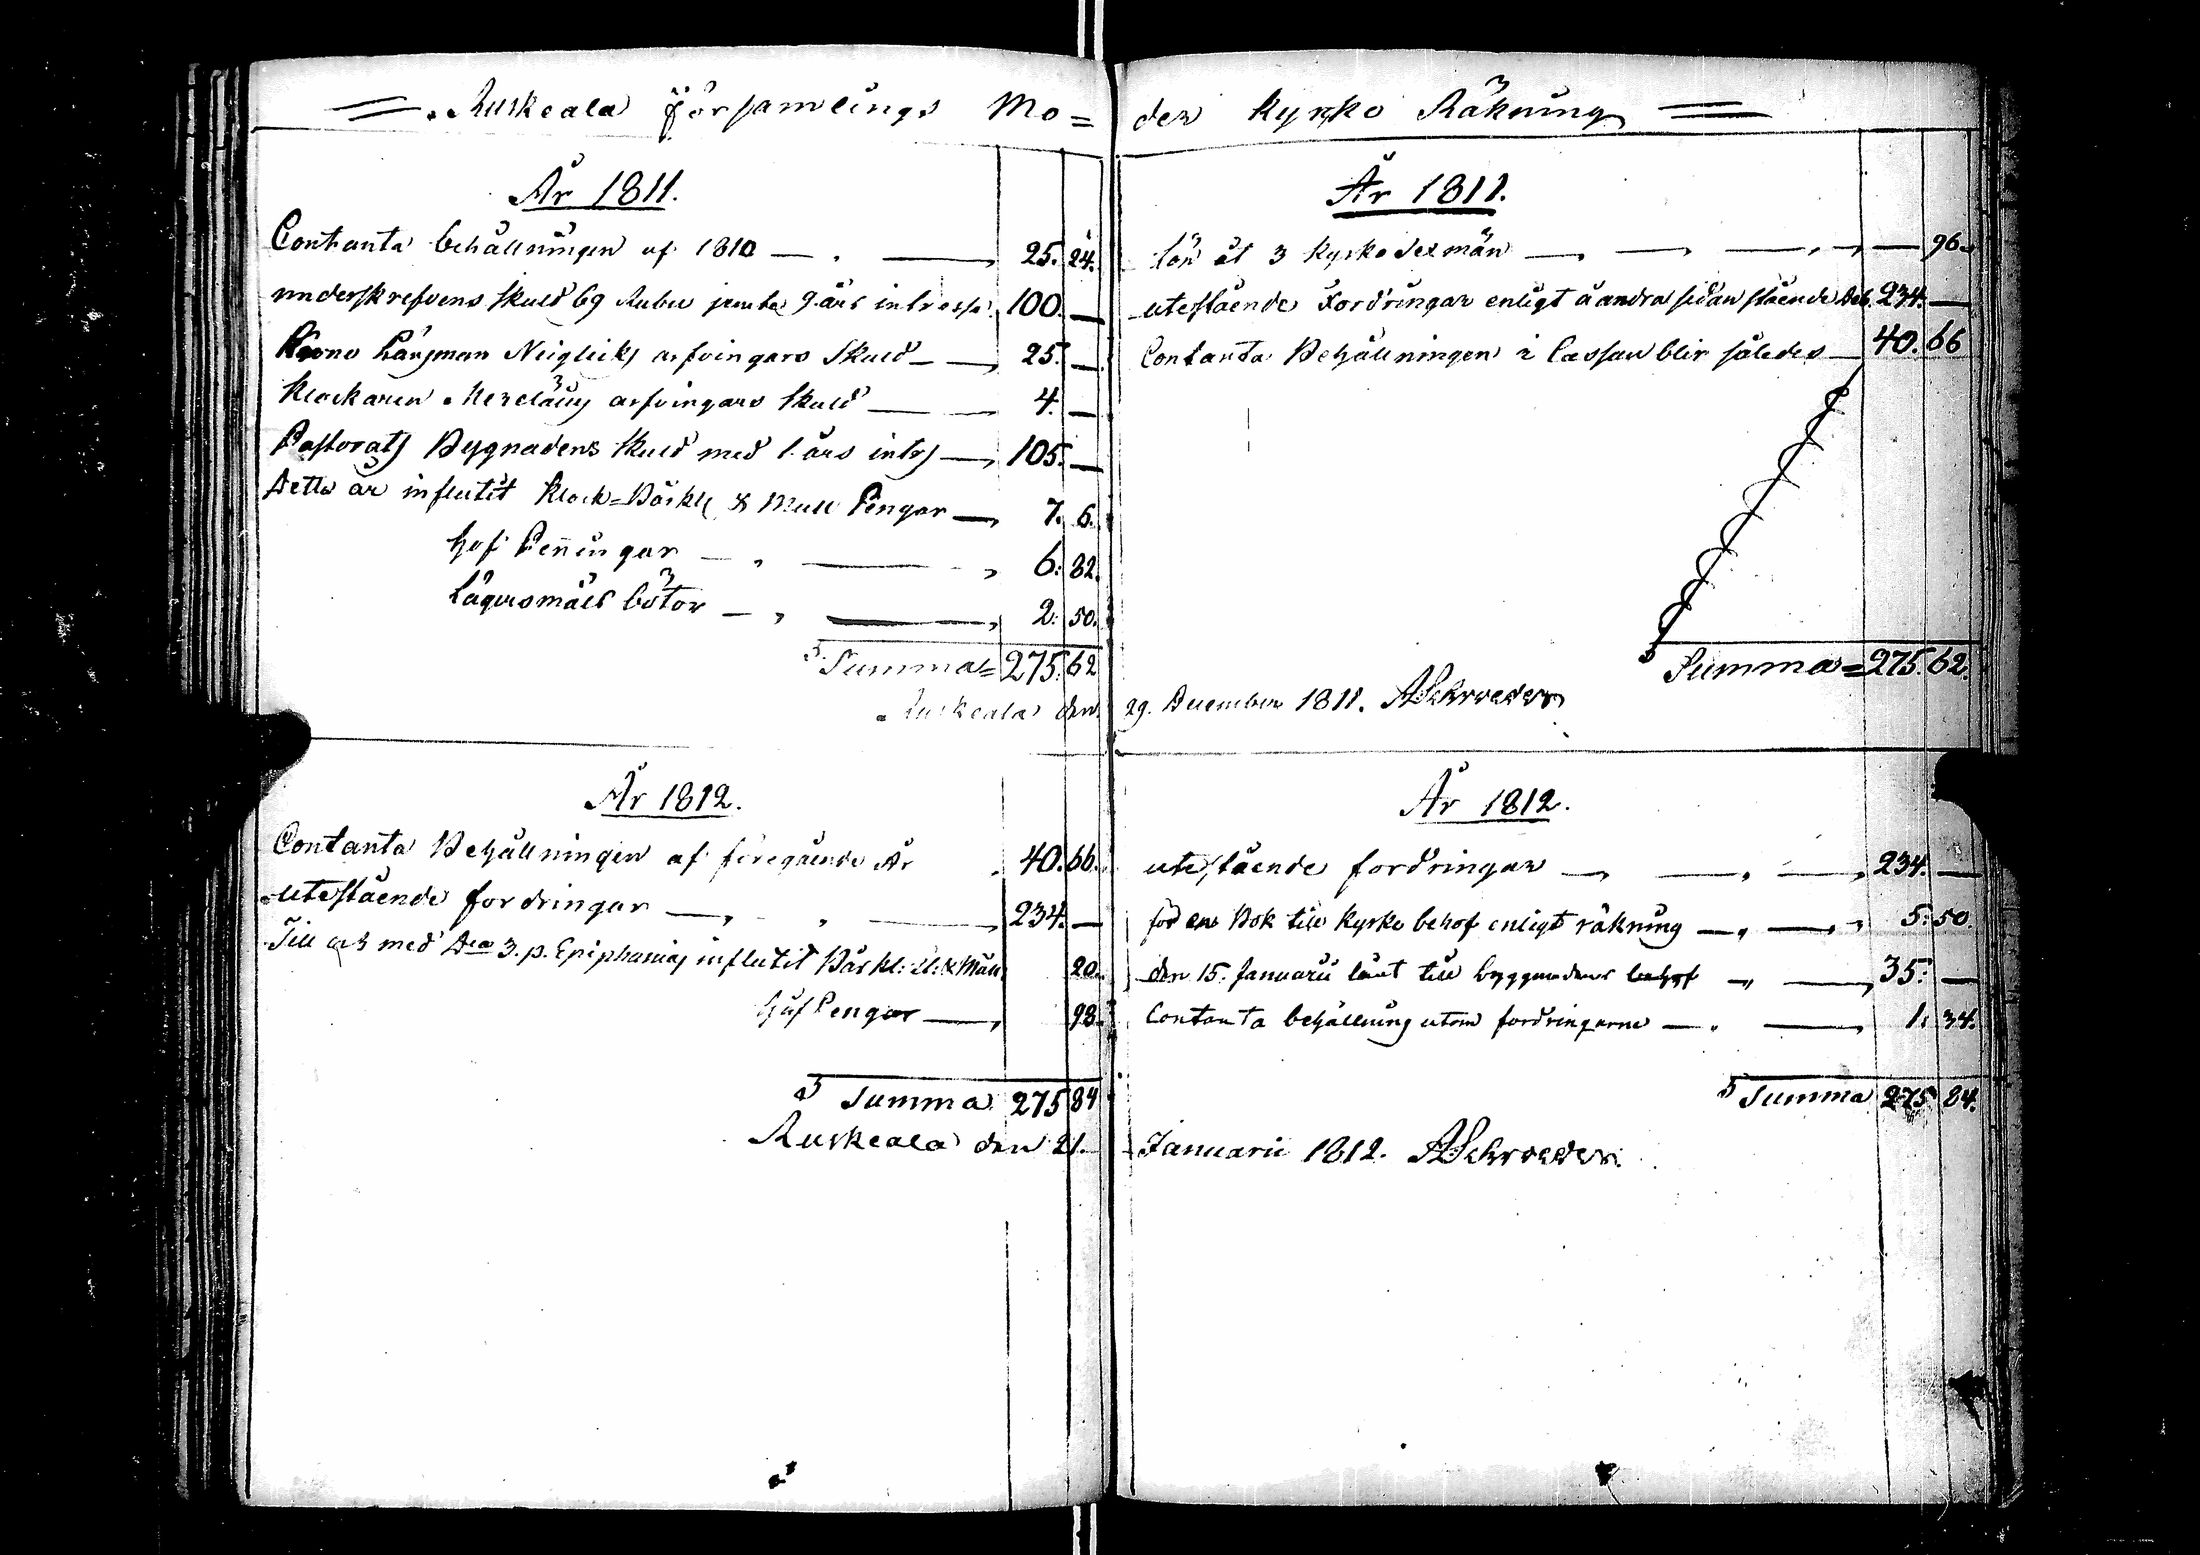 Ruskeala Församlings Mo=
År 1811.
Contanta behållningen af 1810 25. 24.
underskrefvens skuld 69 Rubel jemte 9. års intresse 100. —
Krono Länsman Neiglicks arfvingars skuld 25. —
Klockaren arfvingars skuld 4. —
Pastorats Bygnadens skuld med 1. års intr. 105. —
Detta år influtit Klock= Bårkl. & Mull Pengar 7. 6.
Håf Penningar 6. 82.
Lägersmåls böter 2. 50.
Summa= 275. 62
Ruskeala den
År 1812.
Contanta Behållningen af föregående År 40. 66.
utestående fordringar 234. —
Till och med Dca 3. p. Epiphanias influtit Bårkl: Kl: & Mull 20.
Håf Pengar 98.
Summa 275 84
Ruskeala den 21.
der Kyrko Räkning
År 1811.
lön åt 3 Kyrko Sexmän — 96.
utestående Fordringar enligt å andra sidan stående Deb. 234. —
Contanta Behållningen i Cassan blir således 40. 66
Summa= 275. 62.
29. December 1811. ASchroeder
År 1812.
utestående fordringar 234. —
för en Bok till Kyrko behof enligt räkning 5. 50.
den 15. Januarii lånt till byggnadens behof 35. —
Contanta behållning utom fordringarne 1. 34.
Summa 275 84.
Januarii 1812. ASchroeder.